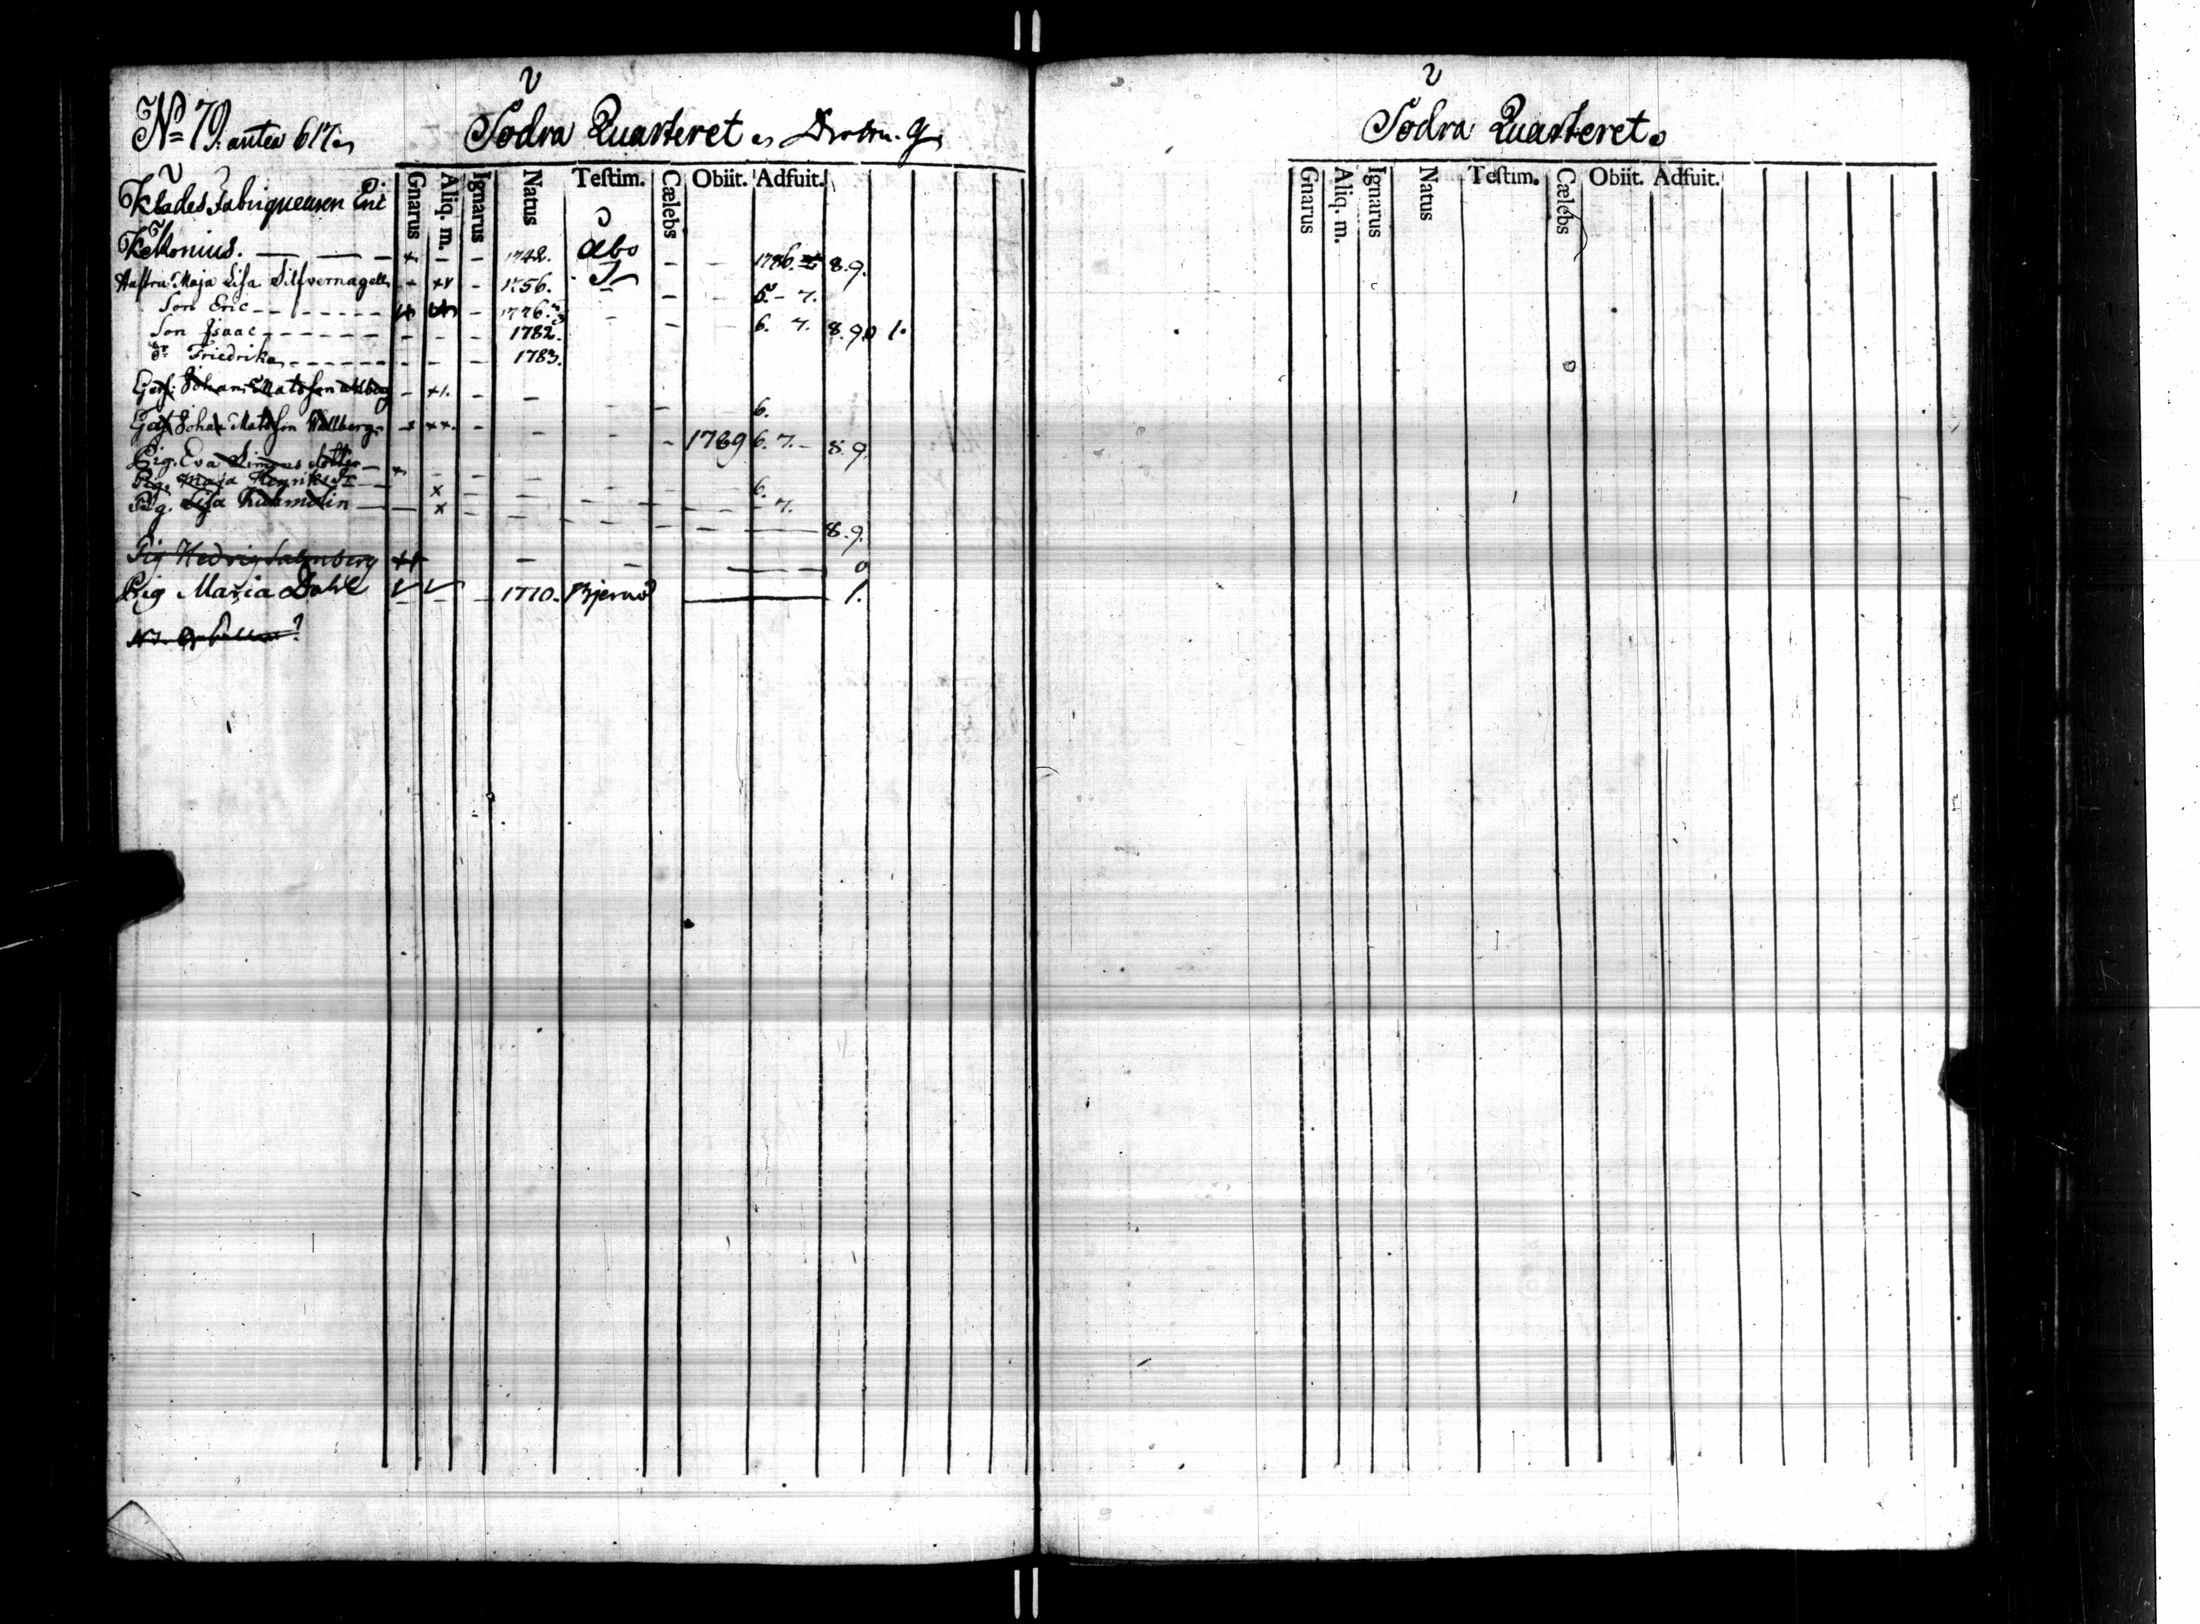 No 79. antea 617.
Södra Quarteret
Gnarus Aliq. m. Ignarus Natus Testim. Cælebs Obiit. Adfuit.
Klädes Fabriqueuren Eric
Kekonius. — — — x — — 1742. Åbo — — 1786. 8. 9.
Hustru Maja Lisa Silfvernagel — xx — 1756. — — 6. — 7.
Son Eric — — 1776. — — 6. 7. 8. 9. 0 1.
Son Isaac — — — — 1782.
Dr Friedrika — — — — 1783.
Ges: Johan Matsson Wallberg — x+. — — — — 6.
Ges Johan Matsson Wallberg x xx. — — — — 1789 6. 7. — 8. 9.
Pig. Eva Simons dotter — x — — — — — 6.
Pig. Maja Henriks dr — x — — — — — 7.
Pig. Lisa — x — — — — — 8. 9.
Pig Hedvig Salenberg ++ — — — 0
Pig Maria Dahl — 1770. Bjerno — 1.
Södra Quarteret
Gnarus Aliq. m. Ignarus Natus Testim. Cælebs Obiit. Adfuit.